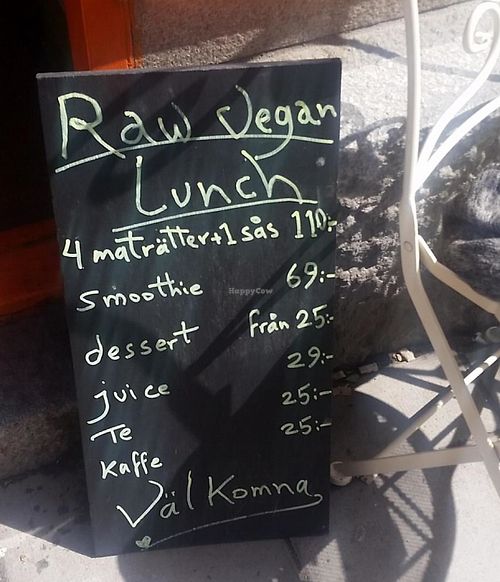 Raw Vegan
Lunch
4 maträtter+1 sås 110:-
Smoothie 69:-
dessert från 25:-
juice 29:-
Te 25:-
Kaffe 25:-
Välkomna
HappyCow